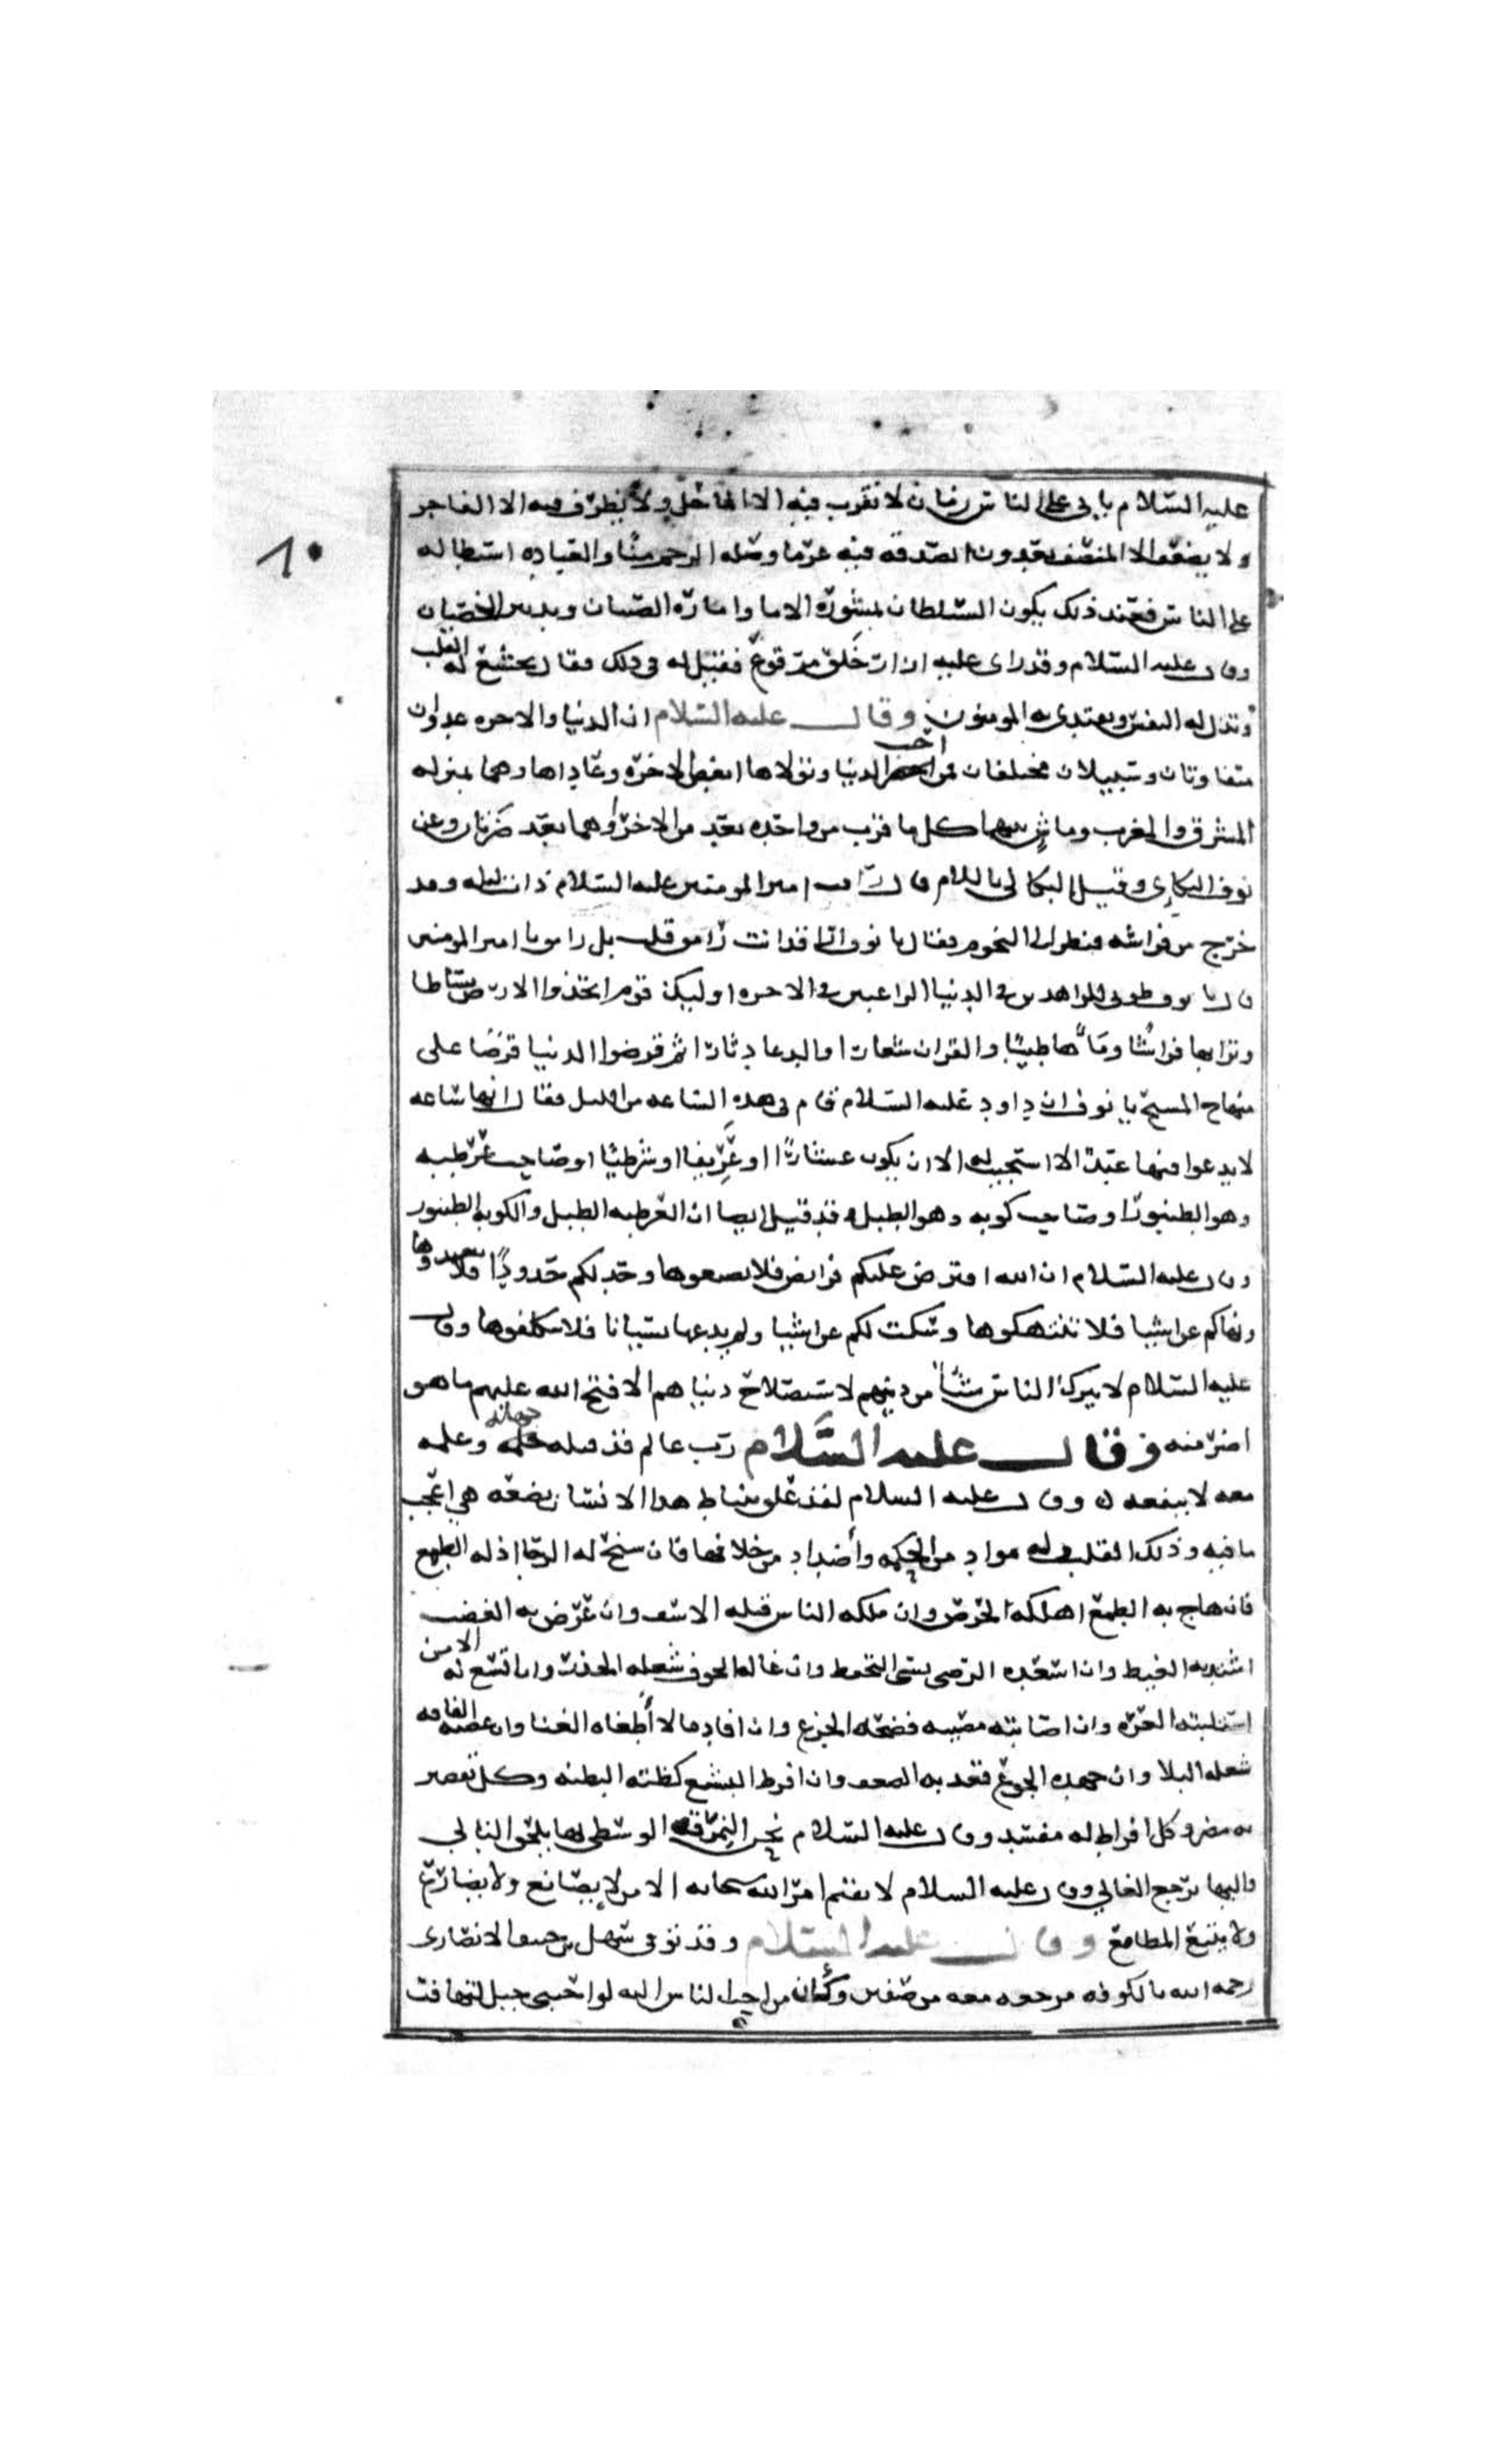 عليه السلام ياتي على الناس زمان لا يقرب فيه الا الماحل ولا يظرف فيه الا الفاجر
ولا يضعف الا المنصف يعدون الصدقه فيه غرما وصله الرحم منا والعباده استطاله
على الناس فعند ذلك يكون السلطان بمشورة الاما وامارة الصبيان وتدبير الخصيان
وقال عليه السلام وقد راى عليه ازار خلق مرقوع فقيل له في ذلك فقال يخشع له القلب
وتذل له النفس ويقتدي به المومنون وقال عليه السلام ان الدنيا والاخره عدوان
متفاوتان وسبيلان مختلفان فمن احب الدنيا وتولاها ابغض الاخرة وعاداها وهما بمنزله
المشرق والمغرب وماش بينهما كل ما قرب من واحده بعد من الاخر وهما بعد ضرتان وعن
نوف البكاري وقيل البكالي باللام قال رايت امير المومنين عليه السلام ذات ليله وقد
خرج من فراشه فنظر الى النجوم فقال يا نوف اراقد انت ام رامق قلت بل رامق يا امير المومنين
قال يا نوف طوبى للزاهدين في الدنيا الراغبين في الاخره اوليك قوم اتخذوا الارض بساطا
وترابها فراشا وماها طيبا والقران شعارا والدعا دثارا ثم قرضوا الدنيا قرضا على
منهاج المسيح يا نوف ان داود عليه السلام قام في هذه الساعه من الليل فقال انها ساعه
لا يدعوا فيها عبد الا استجيب له الا ان يكون عشارا او عريفا او شرطيا او صاحب عرطبه
وهو الطنبور او صاحب كوبه وهو الطبل وقد قيل ايضا ان العرطبه الطبل والكوبه الطنبور
وقال عليه السلام ان الله افترض عليكم فرايض فلا تضيعوها وحد لكم حدودا فلا تعتدوها
ونهاكم عن اشيا فلا تنتهكوها وسكت لكم عن اشيا ولم يدعها نسيانا فلا تتكلفوها وقال
عليه السلام لا يترك الناس شيئا من دينهم لاستصلاح دنياهم الا فتح الله عليهم ما هو
اضر منه وقال عليه السلام رب عالم قد قتله جهله وعلمه
معه لا ينفعه وقال عليه السلام لقد علق بنياط هذا الانسان بضعه هي اعجب
ما فيه وذلك القلب وله مواد من الحكمه واضداد من خلافها فان سنح له الرجا اذله الطمع
فان هاج به الطمع اهلكه الحرص وان ملكه الياس قتله الاسف وان عرض به الغضب
اشتد به الغيظ وان اسعده الرضى نسي التحفظ وان غاله الخوف شغله الحذر وان اتسع له الامن
استلبته الغره وان اصابته مصيبه فضحه الجزع وان افاد مالا أطغاه الغنا وان عضته الفاقه
شغله البلا وان جهده الجوع قعد به الضعف وان افرط الشبع كظته البطنه وكل تقصير
به مضر وكل افراط له مفسد وقال عليه السلام نحن النمرقه الوسطى بها يلحق التالي
واليها يرجع الغالي وقال عليه السلام لا يقيم امر الله سبحانه الا من لا يصانع ولا يضارع
ولا يتبع المطامع وقال عليه السلام وقد توفي سهل بن حنيف الانصارى
رحمه الله بالكوفه مرجعه معه من صفين وكان من احب الناس اليه لو احبني جبل لتهافت